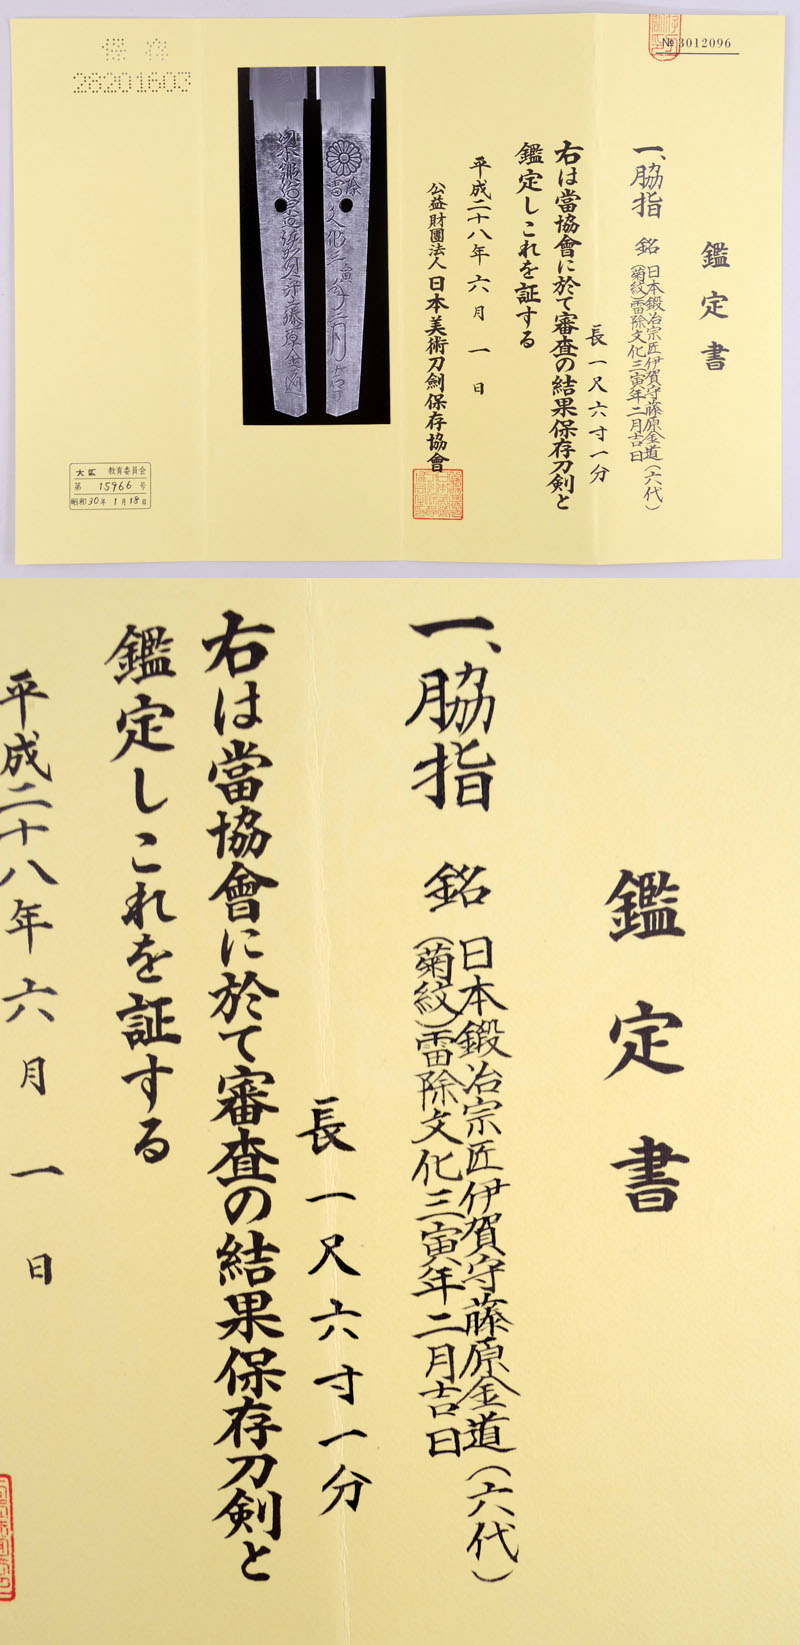 № 3012096
鑑定書
一、脇指 銘 日本鍛冶宗匠伊賀守藤原金道(六代)
(菊紋)雷除文化三寅年二月吉日
長一尺六寸一分
右は當協會に於て審査の結果保存刀剣と
鑑定しこれを証する
平成二十八年六月一日
公益財團法人日本美術刀劍保存協會
保存
28201603
大阪 教育委員会
第 15966 号
昭和30年 1月18日
鑑定書
一、脇指 銘 日本鍛冶宗匠伊賀守藤原金道(六代)
(菊紋)雷除文化三寅年二月吉日
長一尺六寸一分
右は當協會に於て審査の結果保存刀剣と
鑑定しこれを証する
平成二十八年六月一日